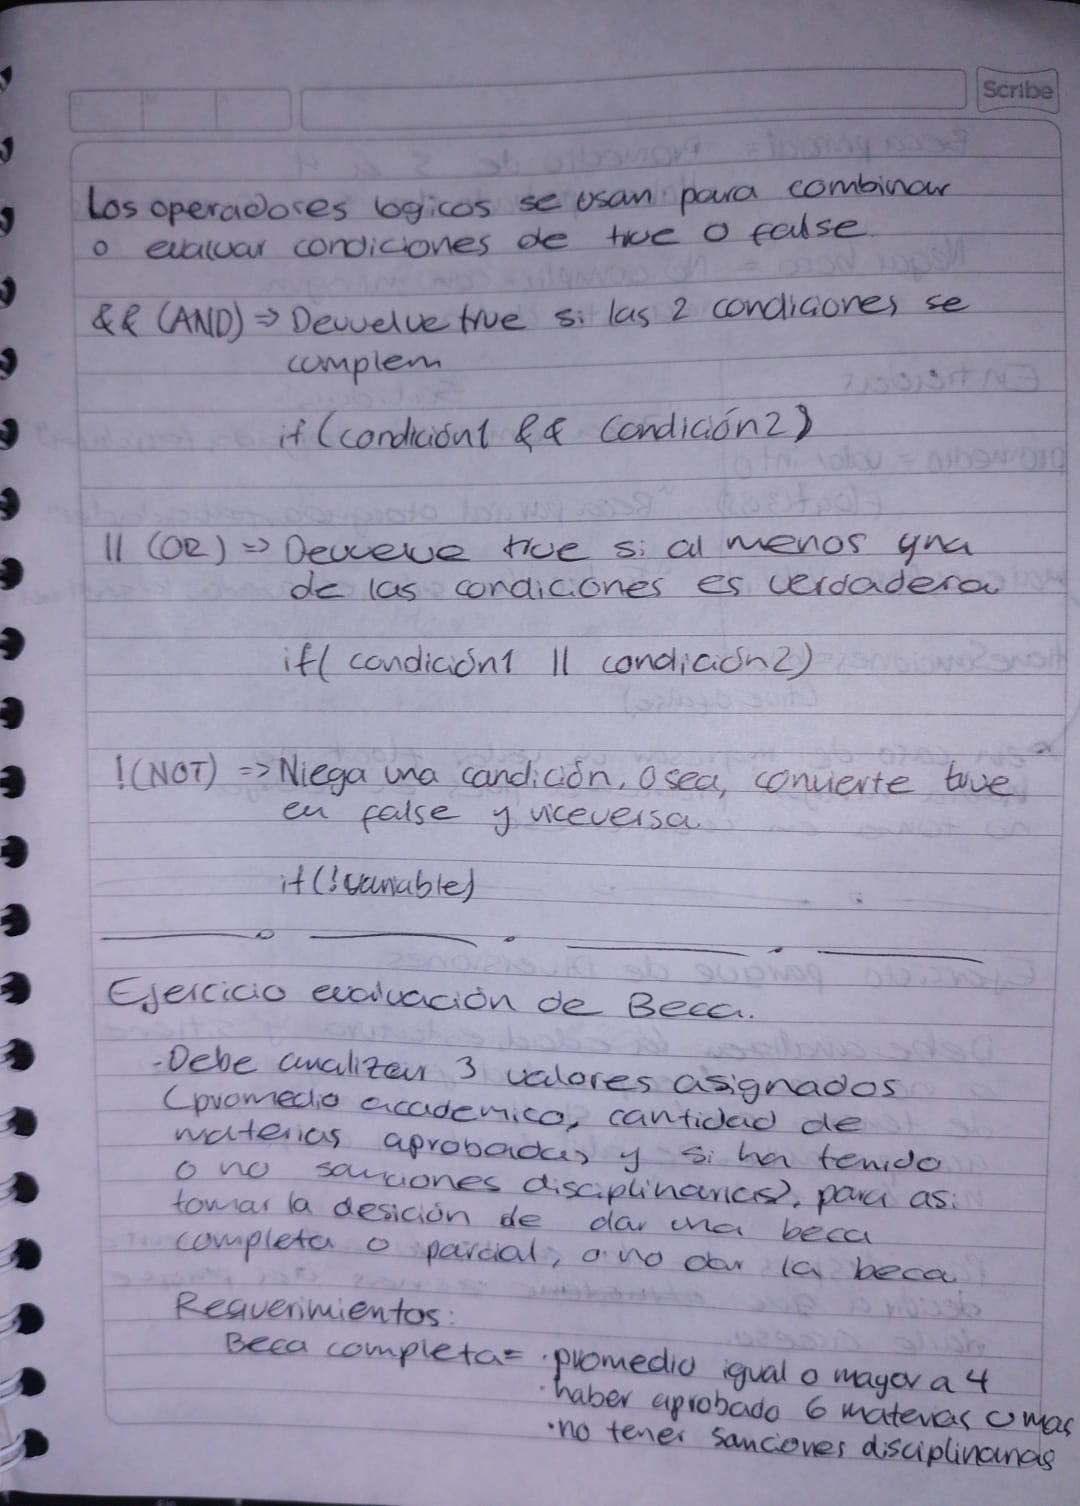 Scribe
Los operadores logicos se usan para combinar
o evaluar condiciones de true o false.
&& (AND) => Devuelve true si las 2 condiciones se
cumplem
if (condición1 && Condición2)
|| (OR) => Devuelve true si al menos una
de las condiciones es verdadera
if( condición1 || condición2)
!(NOT) => Niega una condición, O sea, convierte true
en false y viceversa.
if(!variable)
Ejercicio evaluación de Beca.
-Debe analizar 3 valores asignados
(promedio academico, cantidad de
materias aprobadas y si ha tenido
o no sanciones disciplinarias), para asi
tomar la desición de dar una beca
completa o parcial, o no dar la beca
Requerimientos:
Beca completa= ·promedio igual o mayor a 4
·haber aprobado 6 materias o mas
·no tener sanciones disciplinarias